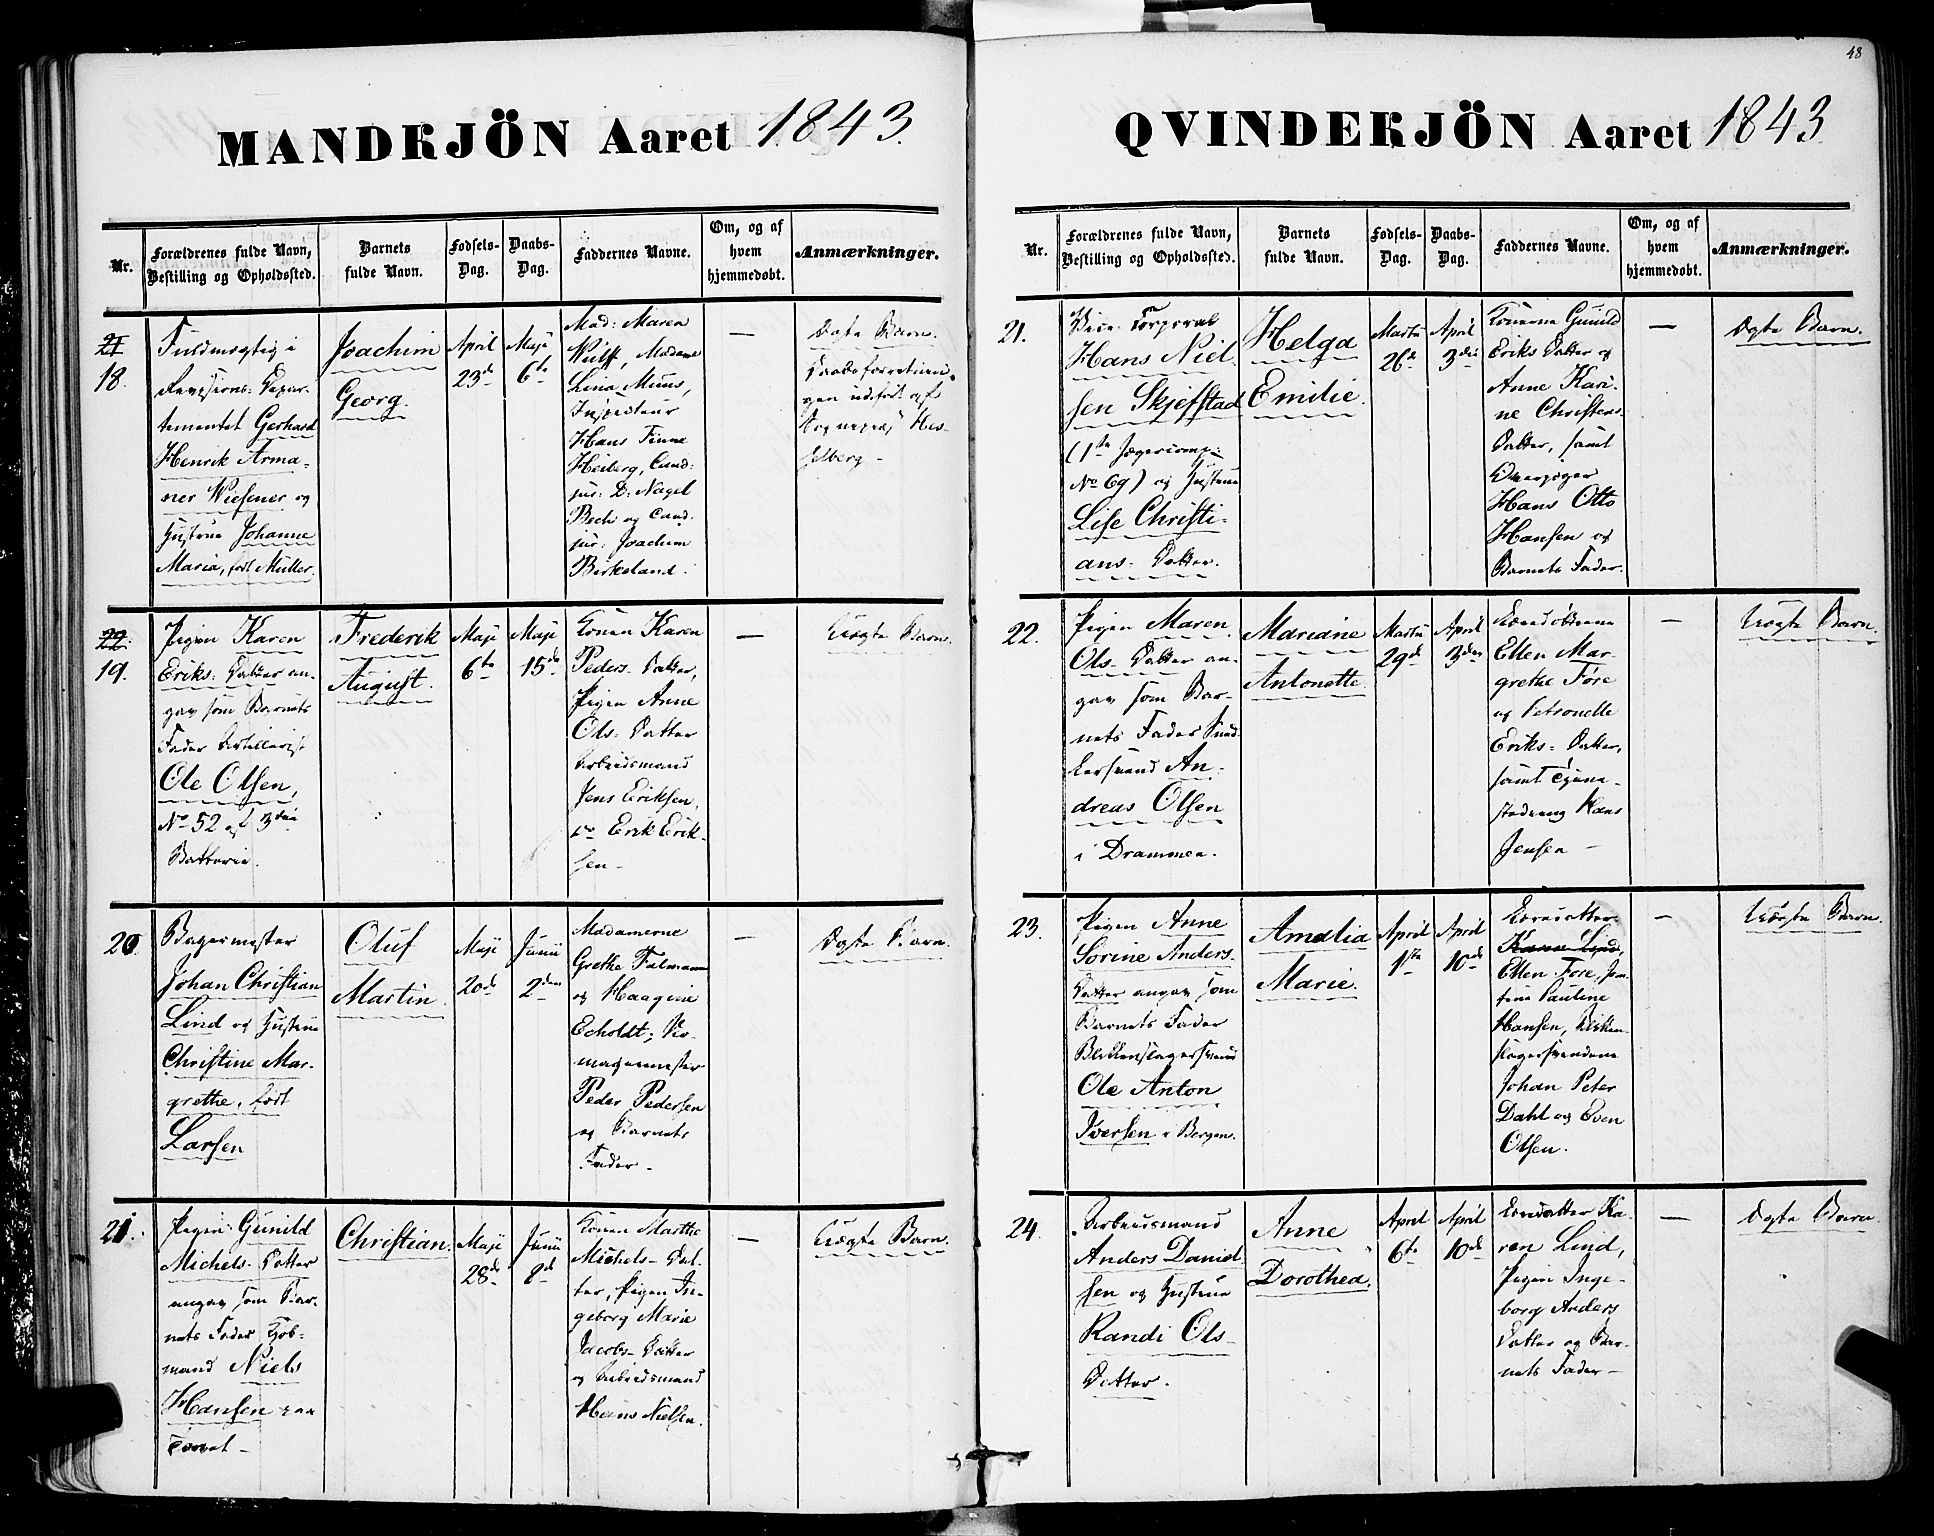 48
MANDKJÖN Aaret 1843.
Nr.
Forældrenes fulde Navn,
Bestilling og Opholdssted.
Barnets
fulde Navn.
Fødsels-
Dag.
Daabs-
Dag.
Faddernes Navne.
Om, og af
hvem
hjemmedøbt.
Anmærkninger.
21
18
Fuldmægtig i
Revisions-Depar-
tementet Gerhard
Henrik Arma-
ner Wiesener og
Hustrue Johanne
Maria, født Müller.
Joachim
Georg.
April
23de
Maji
6te
Mad: Maren
Wulff, Madame
Lina Muus,
Inspecteur
Hans Finne
Heiberg, Cand:
jur: D: Nagel
Bech og Cand.
jur: Joachim
Birkeland.
—
Ægte Barn.
Daabsforretnin-
gen udført af
Sognepr. Hes-
selberg —
22.
19.
Pigen Karen
Eriks-Datter an-
gav som Barnets
Fader Artillerist
Ole Olsen,
No 52 af 3die
Batterie.
Frederik
August.
Maji
6te
Maji
15de
Konen Karen
Peders-Datter,
Pigen Anne
Ols-Datter
Arbeidsmand
Jens Eriksen,
do Erik Erik-
sen —
—
Uægte Barn.
20.
Bagermester
Johan Christian
Lind og Hustrue
Christine Mar-
grethe, født
Larsen
Oluf
Martin.
Maji
20de
Junii
2den
Madamerne
Grethe Falmann
og Haagine
Echoldt;
magermester
Peder Pedersen
og Barnets
Fader —
—
Ægte Barn.
21.
Pigen Gunild
Michels-Datter
angav som Bar-
nets Fader
mand Niels
Hansen paa
Christian.
Maji
28de
Junii
8de
Konen Marthe
Michels-Dat-
ter, Pigen In-
geborg Marie
Jacobs-Datter
og Arbeidsmand
Hans Nielsen.
—
Uægte Barn.
QVINDEKJÖN Aaret 1843
Nr.
Forældrenes fulde Navn,
Bestilling og Opholdssted.
Barnets
fulde Navn.
Fødsels-
Dag.
Daabs-
Dag.
Faddernes Navne.
Om, og af
hvem
hjemmedøbt.
Anmærkninger.
21.
Vice-Corporal
Hans Niel
sen Skjefstad
(1ste Jægercomp:
No 69) og Hustrue
Lise Christi-
ans-Datter.
Helga
Emilie.
Marts
26de
April
3die
Konerne Gunild
Eriks Datter og
Anne Kari-
ne Christens
Datter, samt
Overjæger
Hans Otto
Hansen og
Barnets Fader.
—
Ægte Barn.
22.
Pigen Maren
Ols-Datter an-
gav som Bar-
nets Fader Sned-
kersvend An-
dreas Olsen
i Drammen.
Mariane
Antonette.
Marts
29de
April
3die
Ellen Mar-
grethe Fore
og Petronelle
Eriks-Datter,
samt Tjene-
stedreng Hans
Jensen —
—
Uægte Barn.
23.
Pigen Anne
Sorine Anders-
Datter angav som
Barnets Fader
Blikkenslagersvend
Ole Anton
Iversen i Bergen.
Amalia
Marie.
April
1ste
April
10de
Karen Lind,
Ellen Fore, Jom-
frue Pauline
Hansen, Blikken-
slagersvendene
Johan Peter
Dahl og Even
Olsen.
—
Uægte Barn.
24.
Arbeidsmand
Anders Daniel
sen og Hustrue
Randi Ols-
Datter.
Anne
Dorothea.
April
6te
April
10de
Ka-
ren Lind,
Pigen Inge-
borg Anders
Datter og Bar-
nets Fader —
—
Ægte Barn.